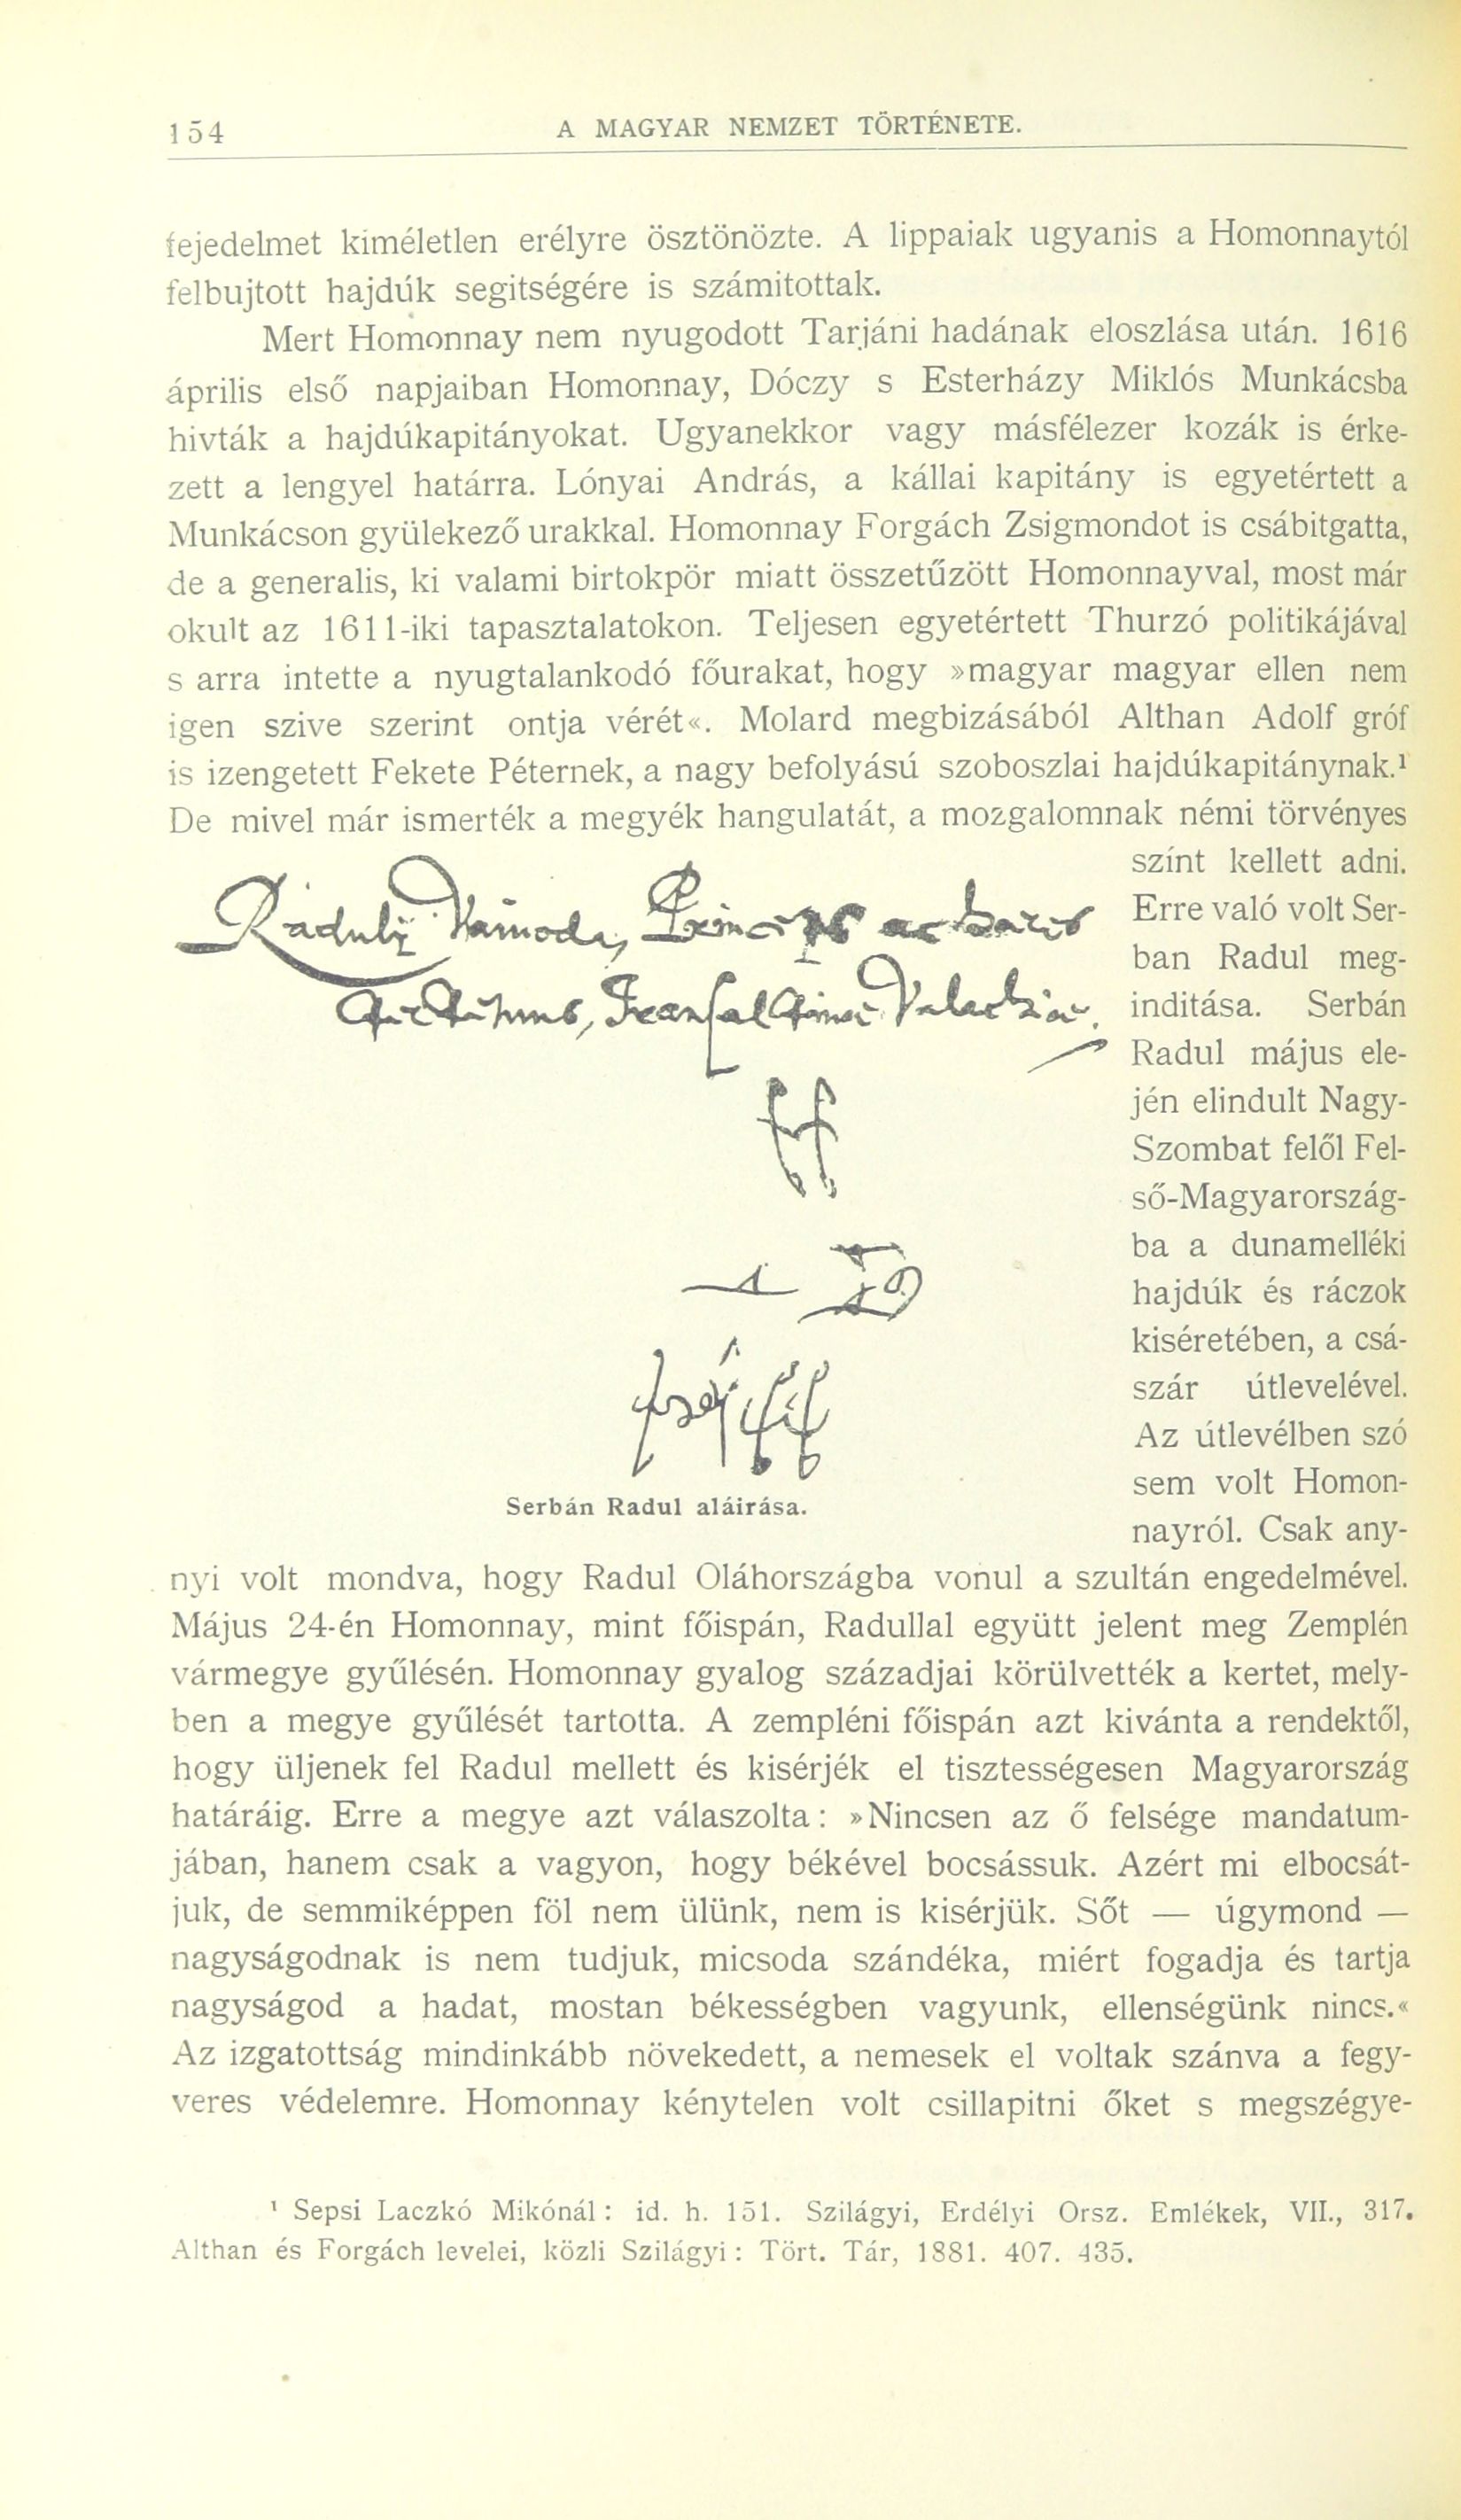 154 A MAGYAR NEMZET TÖRTÉNETE.
fejedelmet kíméletlen erélyre ösztönözte. A lippaiak ugyanis a Homonnaytól
felbujtott hajdúk segitségére is számitottak.
Mert Homonnay nem nyugodott Tarjáni hadának eloszlása után. 1616
április első napjaiban Homonnay, Dóczy s Esterházy Miklós Munkácsba
hivták a hajdúkapitányokat. Ugyanekkor vagy másfélezer kozák is érke-
zett a lengyel határra. Lónyai András, a kállai kapitány is egyetértett a
Munkácson gyülekező urakkal. Homonnay Forgách Zsigmondot is csábitgatta,
de a generalis, ki valami birtokpör miatt összetűzött Homonnayval, most már
okult az 1611-iki tapasztalatokon. Teljesen egyetértett Thurzó politikájával
s arra intette a nyugtalankodó főurakat, hogy »magyar magyar ellen nem
igen szive szerint ontja vérét«. Molard megbizásából Althan Adolf gróf
is izengetett Fekete Péternek, a nagy befolyású szoboszlai hajdúkapitánynak.¹
De mivel már ismerték a megyék hangulatát, a mozgalomnak némi törvényes
színt kellett adni.
Erre való volt Ser-
ban Radul meg-
inditása. Serbán
Radul május ele-
jén elindult Nagy-
Szombat felől Fel-
ső-Magyarország-
ba a dunamelléki
hajdúk és ráczok
kiséretében, a csá-
szár útlevelével.
Az útlevélben szó
sem volt Homon-
nayról. Csak any-
Serbán Radul aláirása.
nyi volt mondva, hogy Radul Oláhországba vonul a szultán engedelmével.
Május 24-én Homonnay, mint főispán, Radullal együtt jelent meg Zemplén
vármegye gyűlésén. Homonnay gyalog századjai körülvették a kertet, mely-
ben a megye gyűlését tartotta. A zempléni főispán azt kivánta a rendektől,
hogy üljenek fel Radul mellett és kisérjék el tisztességesen Magyarország
határáig. Erre a megye azt válaszolta: »Nincsen az ő felsége mandatum-
jában, hanem csak a vagyon, hogy békével bocsássuk. Azért mi elbocsát-
juk, de semmiképpen föl nem ülünk, nem is kisérjük. Sőt — úgymond —
nagyságodnak is nem tudjuk, micsoda szándéka, miért fogadja és tartja
nagyságod a hadat, mostan békességben vagyunk, ellenségünk nincs.«
Az izgatottság mindinkább növekedett, a nemesek el voltak szánva a fegy-
veres védelemre. Homonnay kénytelen volt csillapitni őket s megszégye-
¹ Sepsi Laczkó Mikónál: id. h. 151. Szilágyi, Erdélyi Orsz. Emlékek, VII., 317.
Althan és Forgách levelei, közli Szilágyi: Tört. Tár, 1881. 407. 435.